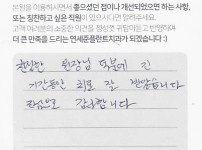 본원을 이용하시면서 좋으셨던 점이나 개선되었으면 하는 사항,
또는 칭찬하고 싶은 직원이 있으시다면 알려주세요.
고객 여러분의 소중한 의견을 정성껏 귀담아듣고 반영하여
더 큰 만족을 드리는 연세준플란트치과가 되겠습니다 :)
원장님 덕분에 긴
기간동안 치료 잘 받았습니다
감사합니다